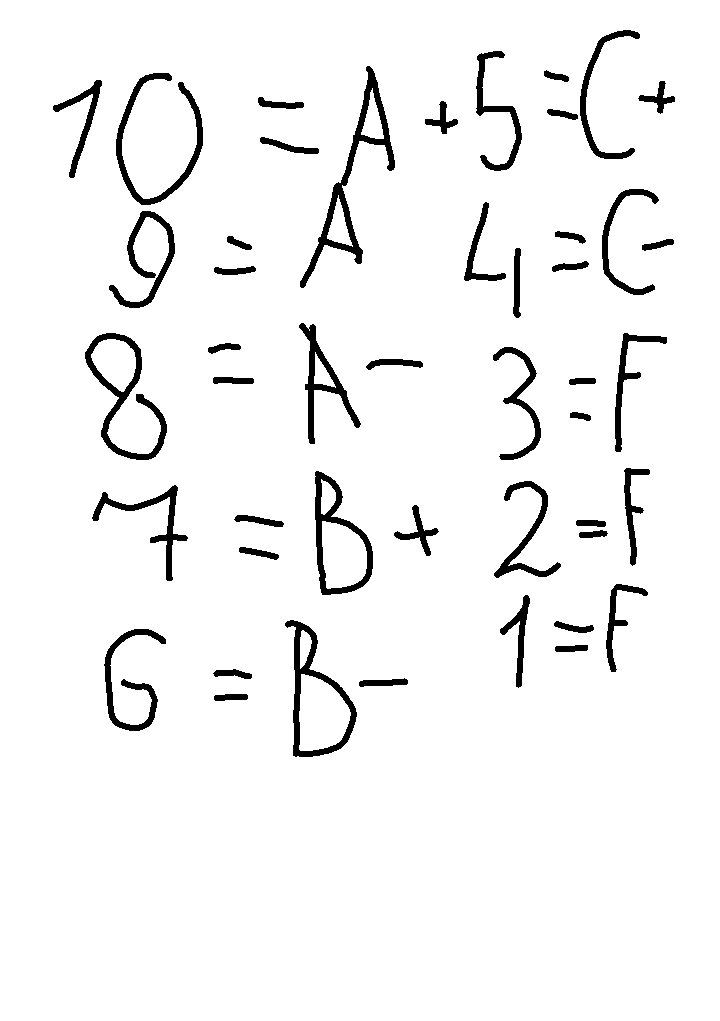 10 = A+
9 = A
8 = A-
7 = B+
6 = B-
5 = C+
4 = C-
3 = F
2 = F
1 = F